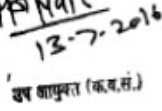 13-7-2016
उप आयुक्त (क.व.सं.)